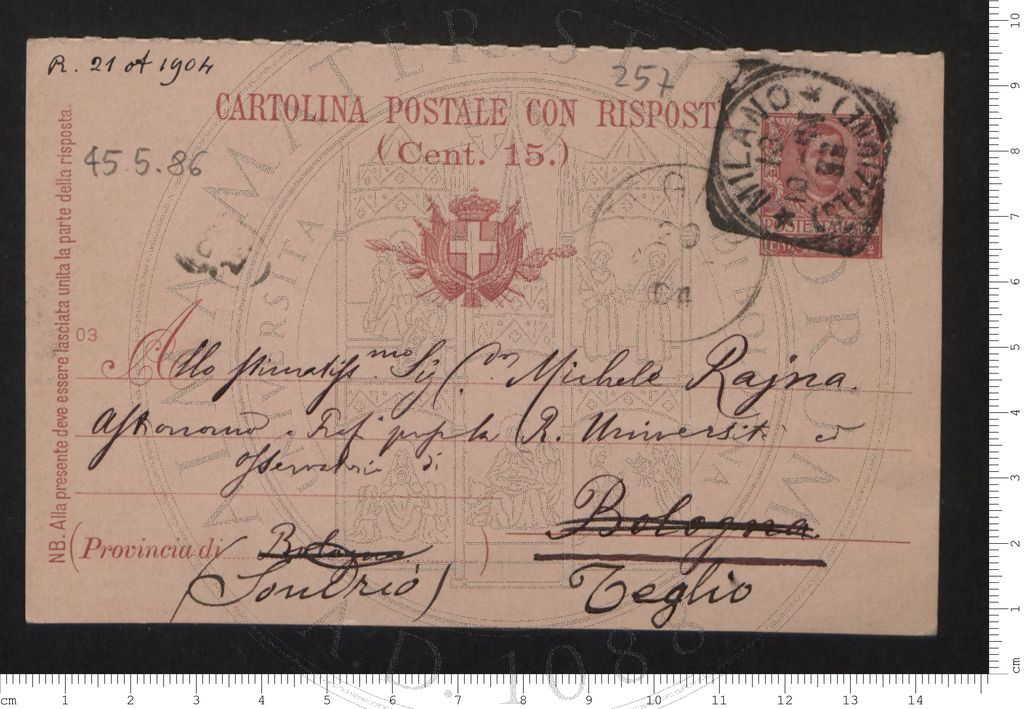 R. 21 ot 1904
257
CARTOLINA POSTALE CON RISPOST
(Cent. 15.)
MILANO
45.5.86
NB. Alla presente deve essere lasciata unita la parte della risposta.
03
Allo stimatiss.mo Sig. Michele Rajna.
Astronomo e Prof presso la R. Università ed
Osservatorio di
Bologna
(Provincia di Bologna)
(Sondrio) Teglio
ALMA MATER STUDIORUM
UNIVERSITÀ DI BOLOGNA
A.D. 1088
cm 1 2 3 4 5 6 7 8 9 10 11 12 13 14
cm 1 2 3 4 5 6 7 8 9 10